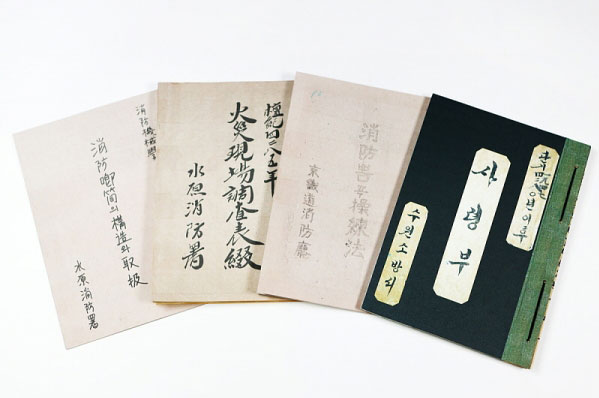 消防機械學
消防喞筒의 構造와 取扱
水原消防署
檀紀四二八五年
火災現場調査表綴
水原消防署
消防 操練法
京畿道消防廳
단기 년이후
사령부
수원소방서